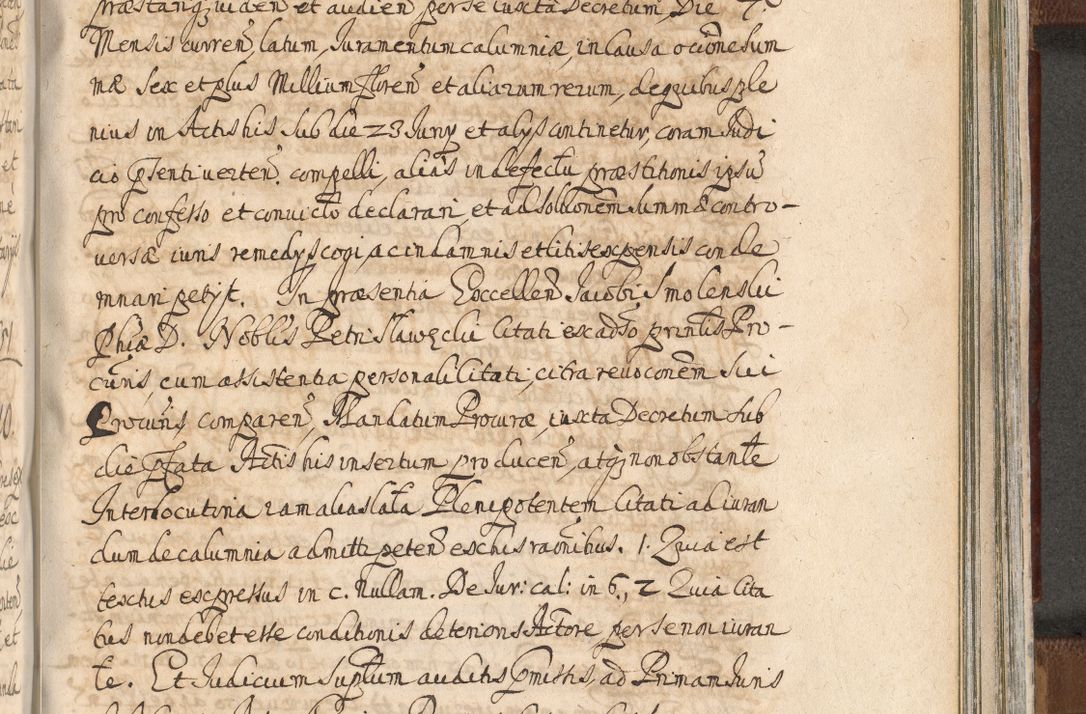 præstanq̃ uiden̄ et audien̄ per se iuxta Decretum, Die 7
Mensis curren̄, latum, Juramentum calumniæ, in causa o ci̅one sum
mæ sex et plus Millium floren̄ et aliarum rerum, de quibus ple
nius in Actis his sub die 23 Junÿ et alÿs continetur, coram Judi
cio p̄senti verten̄. compelli, alias in defectu præstitionis ipsu̅
pro confesso et convicto declarari, et ad soluo̅nem summæ contro-
versæ iuris remedÿs cogi, ac in damnis et litis expensis conde
mnari petÿt. In præsentia Excellen̄ Jacobi Smolenski
Phiæ D. Nobl̃is Petri Slawęcki Citati ex adu̅so prin̅lis Pro-
cu̅ris, cum assistentia personali Citati, citra revoco̅nem sui
Procu̅ris, comparen̄, Mandatum Procuræ, iuxta Decretum sub
die p̄fata Actis his insertum producen̄, atq̃ non obstante
Interlocutoria iam alias lata Plenipotentem Citati ad iuran
dum de calumnia admitti peten̄ ex his rao̅nibus. 1. Quia est
textus expressus in c. Nullam. De Jur: cal: in 6., 2 Quia Cita
tus non debet esse conditionis deterioris Actore, per se non iuran
te. Et Judicium sup̄tum auditis p̄missis ad Primam Juris